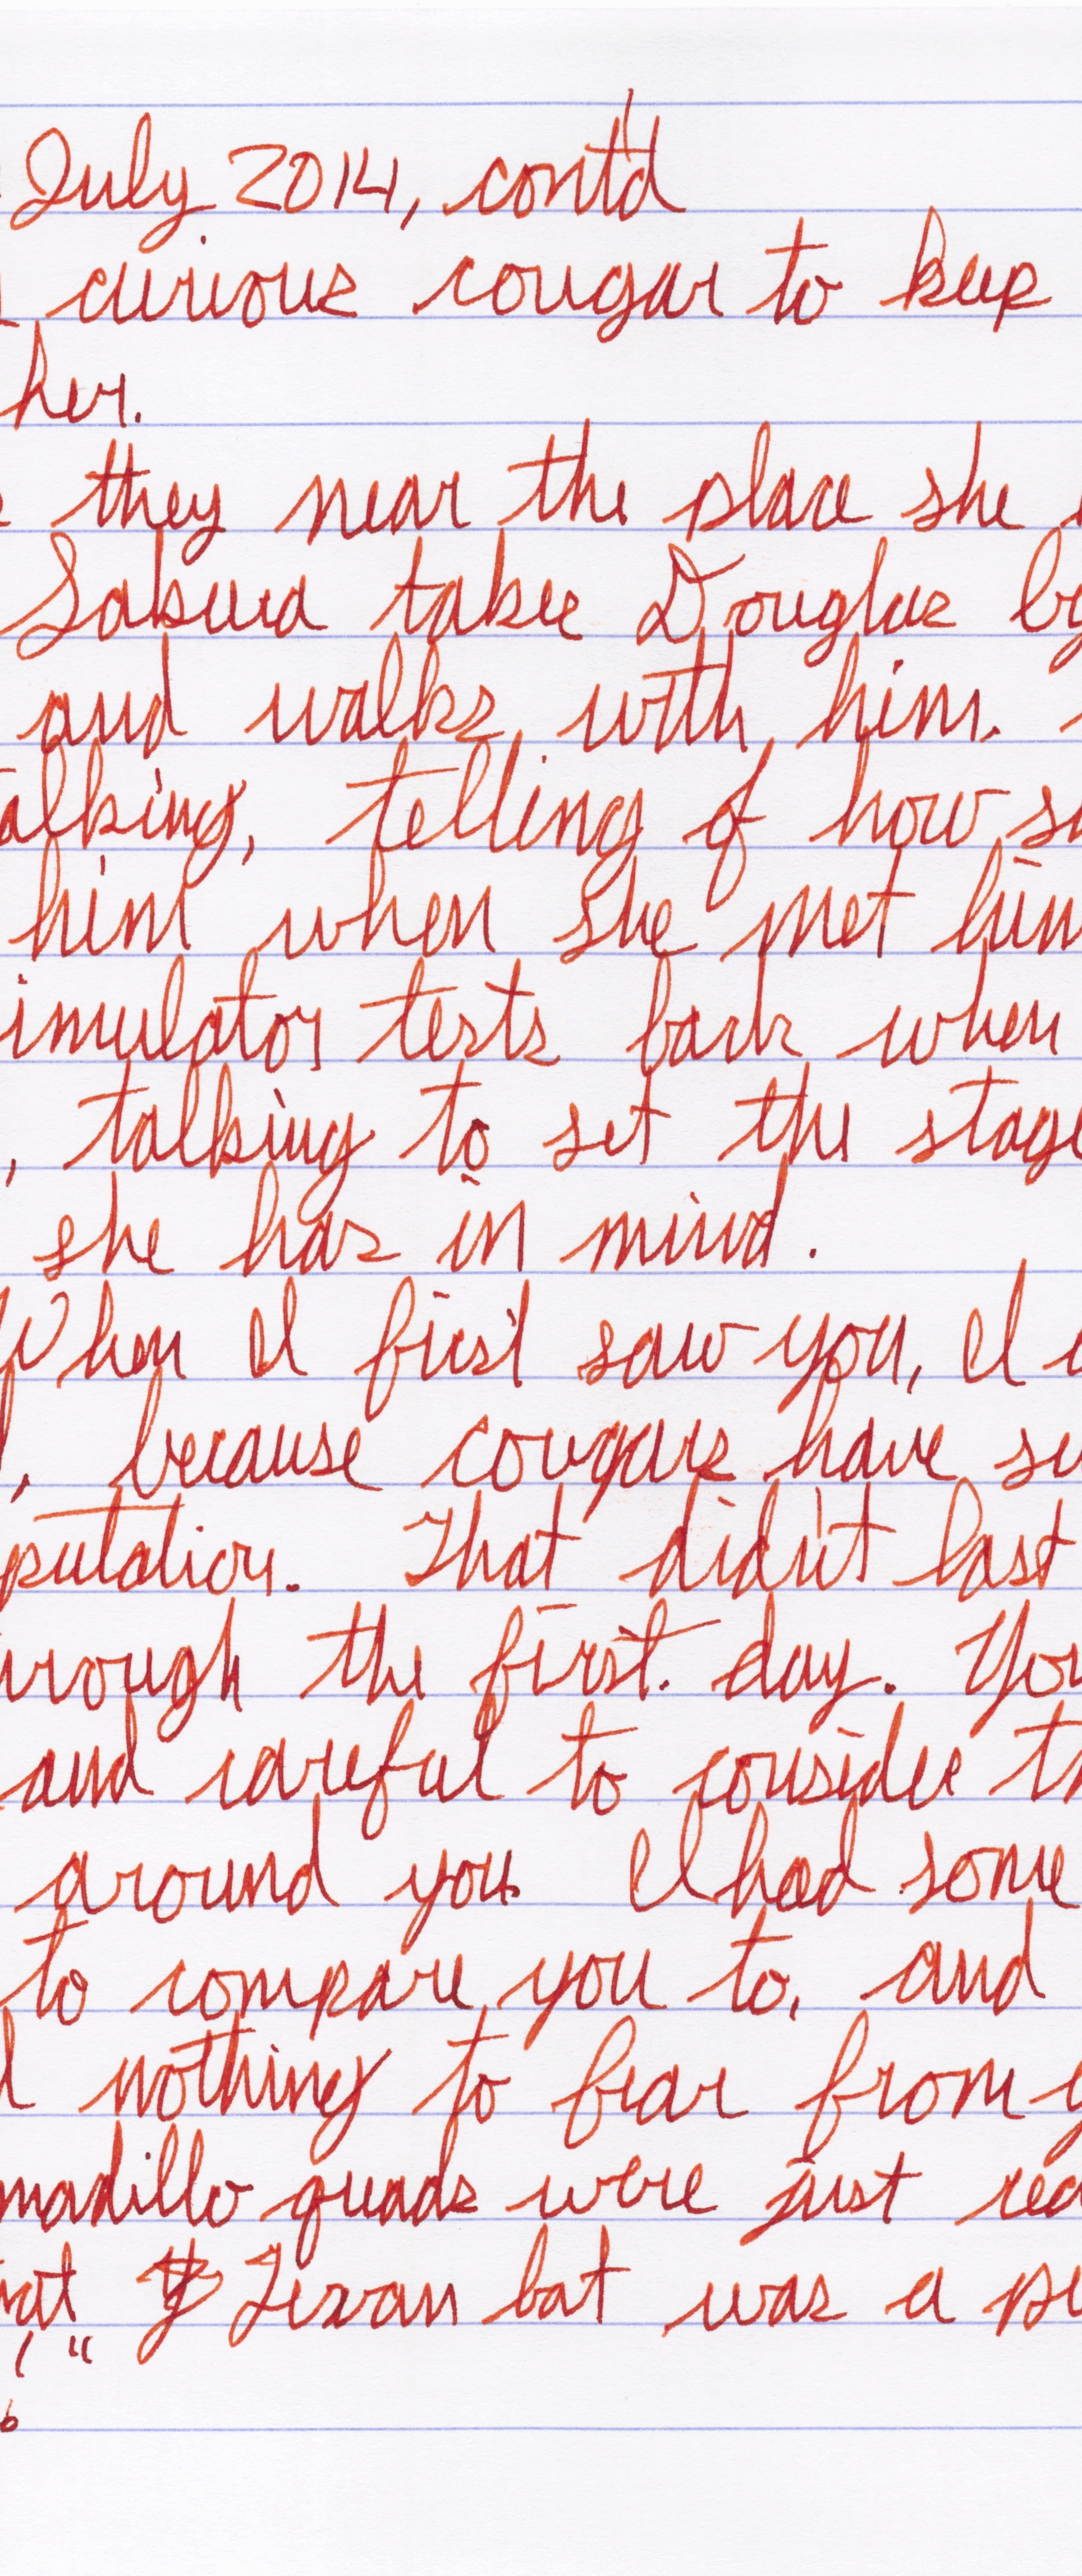 July 2014, cont'd
curious cougar to keep
her.
they near the place she
Sakura takes Douglas by
and walks with him.
alking, telling of how sh
him when she met him
imulator tests back when
, talking to set the stage
she has in mind.
When I first saw you, I
, because cougars have su
putation. That didn't last
hrough the first day. You
and careful to consider th
around you. I had some
to compare you to, and
nothing to fear from y
madillo quads were just rea
hat Texan bat was a
!"
6